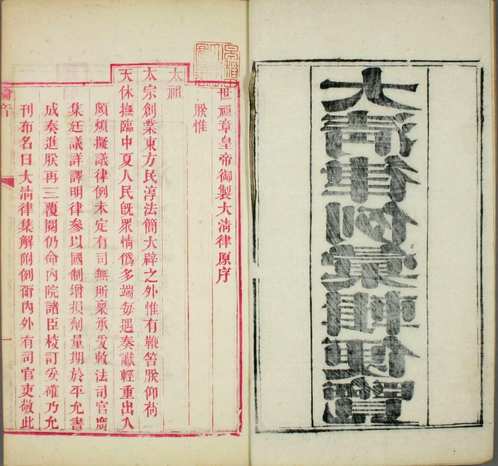 大清律例彙輯便覽
世祖章皇帝御製大淸律原序
朕惟
太祖
太宗創業東方民淳法簡大辟之外惟有鞭笞朕仰荷
天休撫臨中夏人民旣眾情僞多端每遇奏讞輕重出入
頗煩擬議律例未定有司無所稟承爰敕法司官廣
集廷議詳譯明律參以國制增損劑量期於平允書
成奏進朕再三覆閱仍命內院諸臣校訂妥確乃允
刊布名曰大淸律集解附例爾內外有司官吏敬此